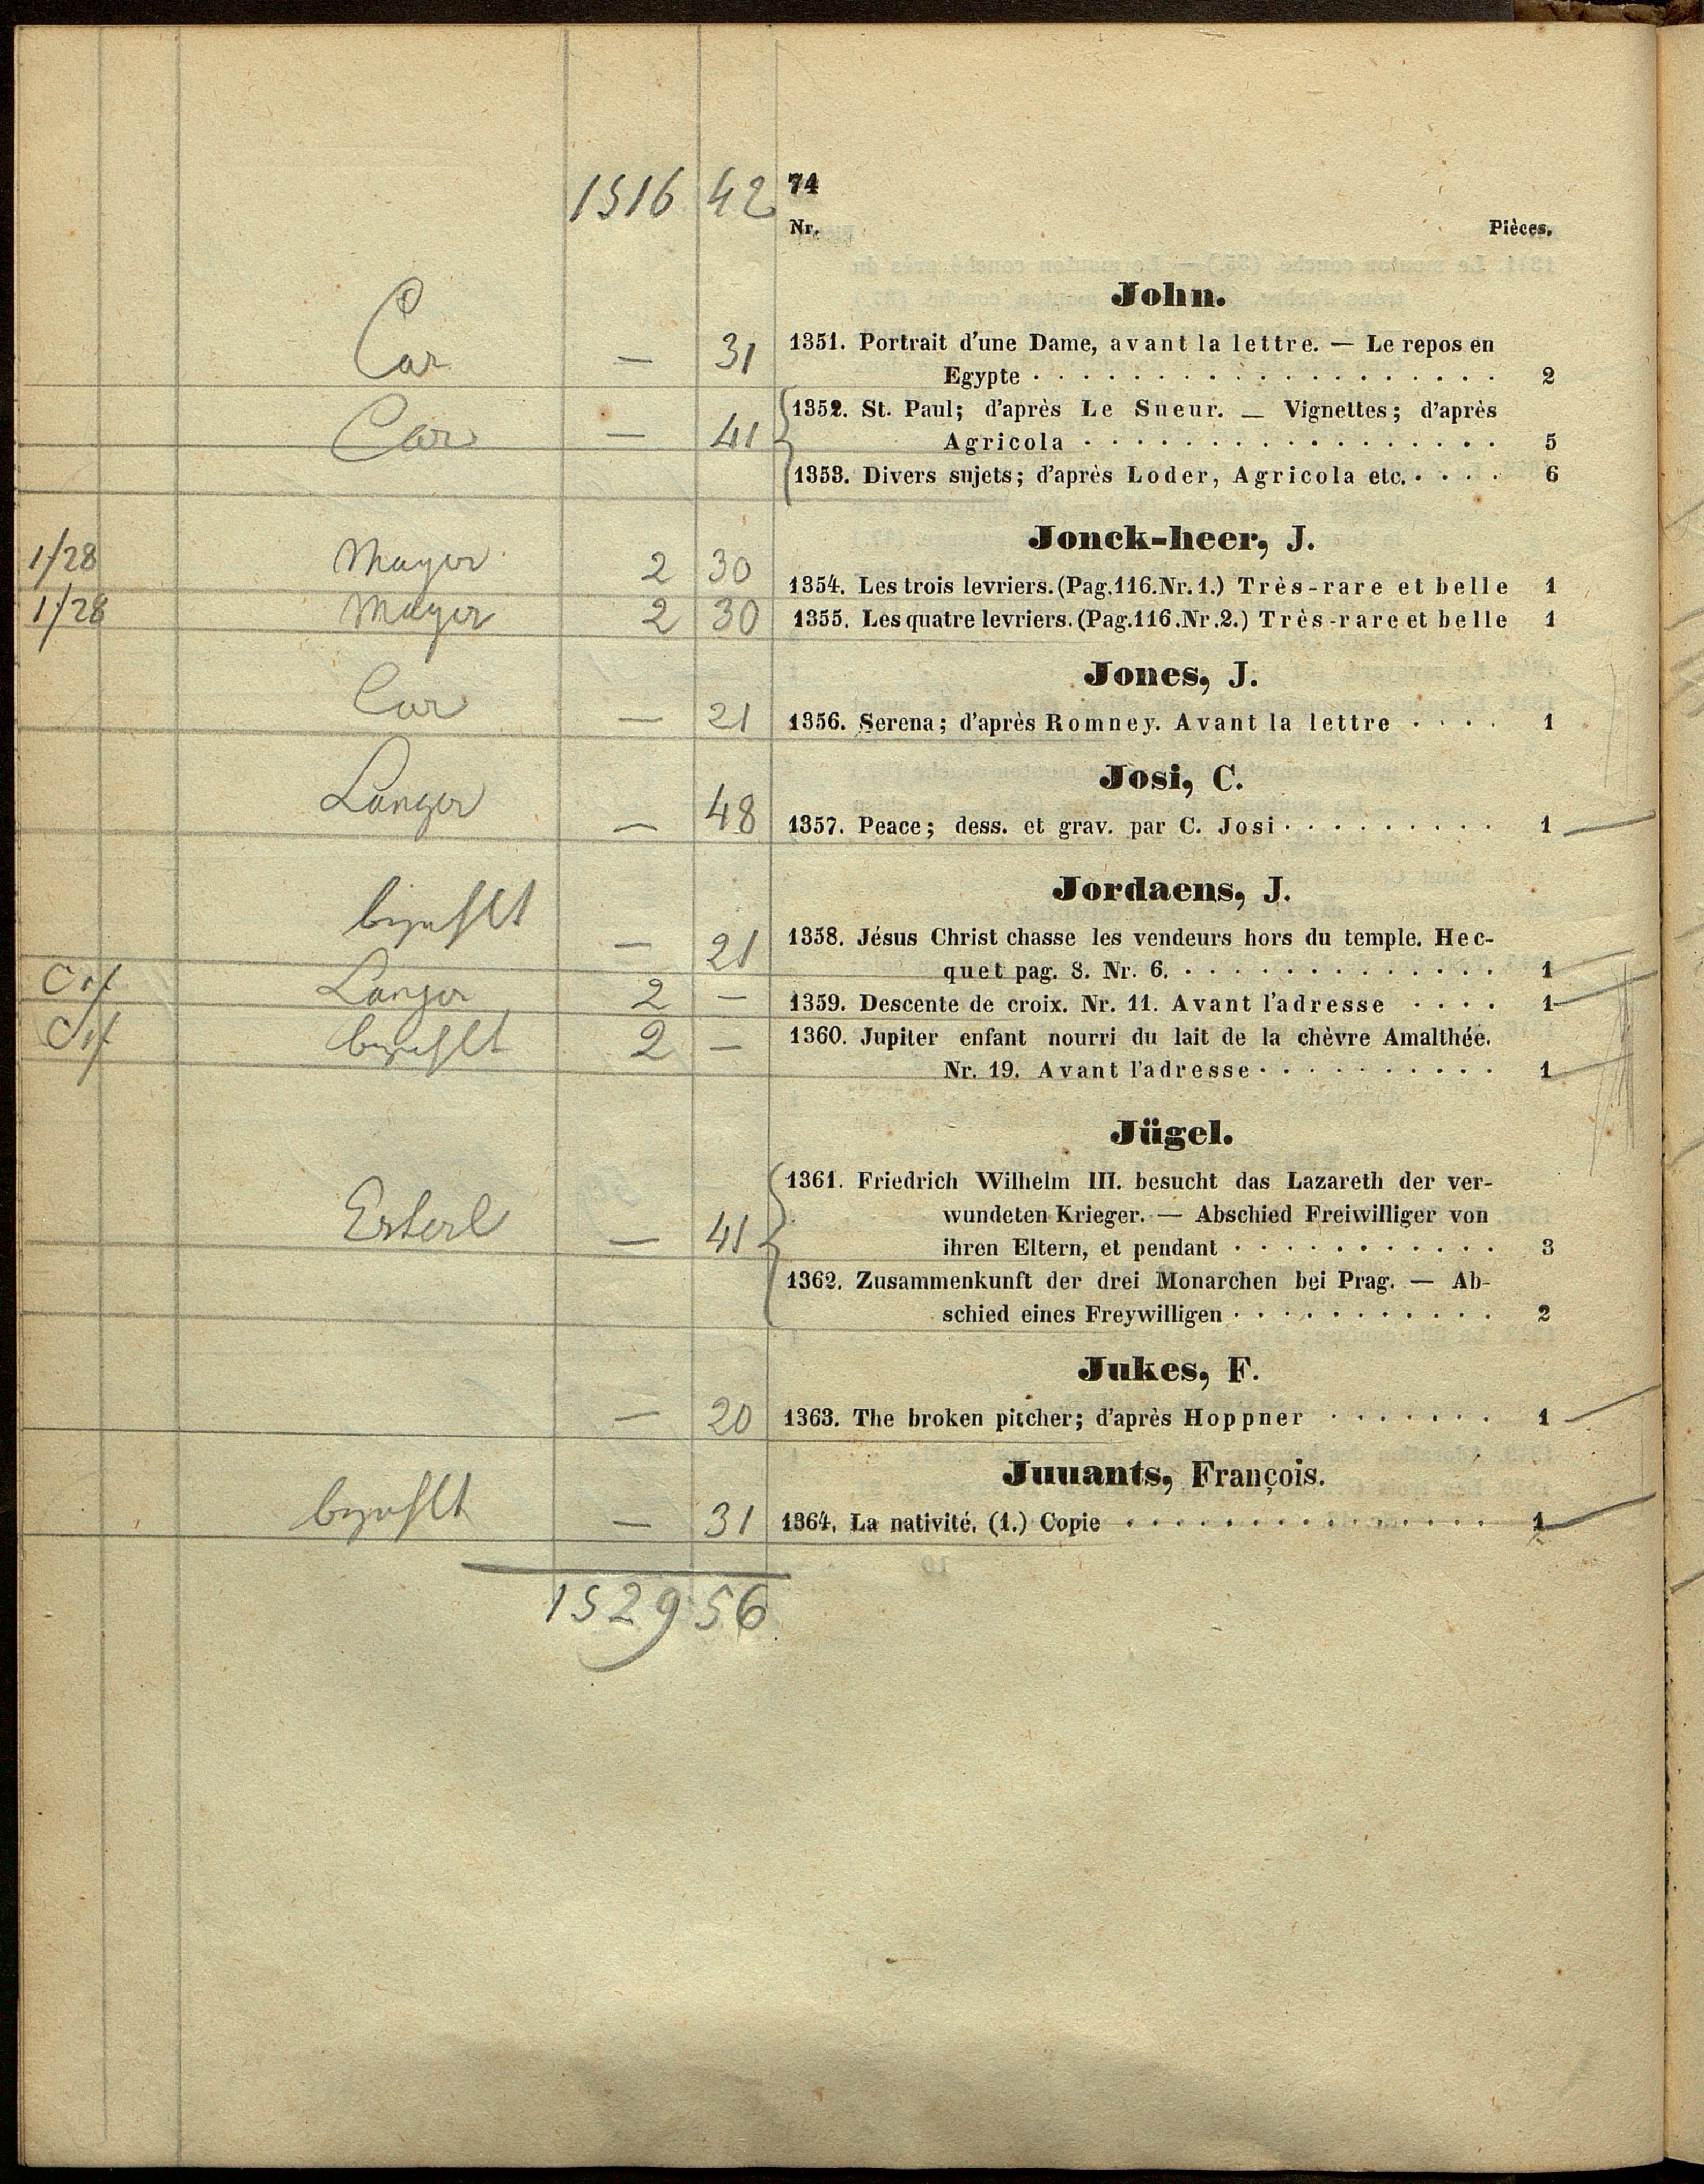 1516 42 74
Nr. Pièces.
John.
Car — 31 1351. Portrait d'une Dame, avant la lettre. — Le repos en
Egypte 2
Car — 41 1352. St. Paul; d'après Le Sueur. — Vignettes; d'après
Agricola 5
1353. Divers sujets; d'après Loder, Agricola etc. 6
Jonck-heer, J.
1/28 Mayer 2 30 1354. Les trois levriers. (Pag. 116. Nr. 1.) Très-rare et belle 1
1/28 Mayer 2 30 1355. Les quatre levriers. (Pag. 116. Nr. 2.) Très-rare et belle 1
Jones, J.
Car — 21 1356. Serena; d'après Romney. Avant la lettre 1
Josi, C.
Langer — 48 1357. Peace; dess. et grav. par C. Josi 1
Jordaens, J.
bezahlt — 21 1358. Jésus Christ chasse les vendeurs hors du temple. Hec-
quet pag. 8. Nr. 6. 1
Langer 2 — 1359. Descente de croix. Nr. 11. Avant l'adresse 1
bezahlt 2 — 1360. Jupiter enfant nourri du lait de la chèvre Amalthée.
Nr. 19. Avant l'adresse 1
Jügel.
1361. Friedrich Wilhelm III. besucht das Lazareth der ver-
wundeten Krieger. — Abschied Freiwilliger von
Esterl — 41 ihren Eltern, et pendant 3
1362. Zusammenkunft der drei Monarchen bei Prag. — Ab-
schied eines Freywilligen 2
Jukes, F.
— 20 1363. The broken pitcher; d'après Hoppner 1
Juuants, François.
bezahlt — 31 1364. La nativité. (1.) Copie 1
1529 56